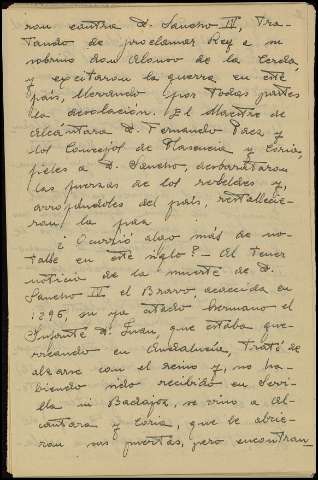 ron contra D. Sancho IV, Tra-
tando de proclamar Rey a su
sobrino don Alonso de la Cerda,
y excitaron la guerra en este
país, llevando por todas partes
la desolación. El Maestre de
Alcántara D. Fernando Paez y
los Concejos de Plasencia y Coria,
fieles a D. Sancho, desbarataron
las fuerzas de los rebeldes y,
arrojándoles del país, restablecie-
ron la paz
¿Ocurrió algo más de no-
table en este siglo? - Al tener
noticia de la muerte de D.
Sancho IV el Bravo, acaecida en
1295, su ya citado hermano el
Infante D. Juan, que estaba gue-
rreando en Andalucía, trató de
alzarse con el reino y, no ha-
biendo sido recibido en Sevi-
lla ni Badajoz, se vino a Al-
cántara y Coria, que le abrie-
ron sus puertas, pero encontran